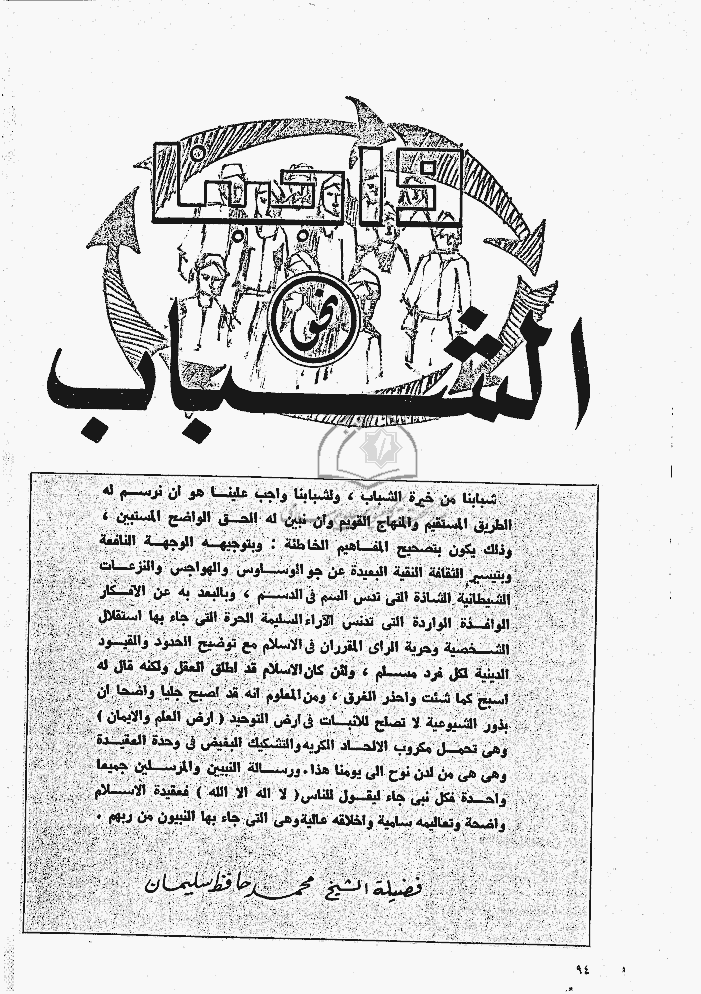 واجبنا
نحو
الشباب
شبابنا من خيرة الشباب ، ولشبابنا واجب علينا هو ان نرسم له
الطريق المستقيم والمنهاج القويم وان نبين له الحق الواضح المستبين ،
وذلك يكون بتصحيح المفاهيم الخاطئة : وبتوجيهه الوجهة النافعة
وبتيسير الثقافة النقية البعيدة عن جو الوساوس والهواجس والنزعات
الشيطانية الشاذة التى تدس السم فى الدسم ، وبالبعد به عن الافكار
الوافدة الواردة التى تدنس الآراء السليمة الحرة التى جاء بها استقلال
الشخصية وحرية الراى المقرران فى الاسلام مع توضيح الحدود والقيود
الدينية لكل فرد مسلم ، ولئن كان الاسلام قد اطلق العقل ولكنه قال له
اسبح كما شئت واحذر الغرق ، ومن المعلوم انه قد اصبح جليا واضحا ان
بذور الشيوعية لا تصلح للانبات فى ارض التوحيد ( ارض العلم والايمان )
وهى تحمل مكروب الالحاد الكريه والتشكيك البغيض فى وحدة العقيدة
وهى هى من لدن نوح الى يومنا هذا . ورسالة النبيين والمرسلين جميعا
واحدة فكل نبى جاء ليقول للناس ( لا اله الا الله ) فعقيدة الاسلام
واضحة وتعاليمه سامية واخلاقه عالية وهى التى جاء بها النبيون من ربهم .
فضيلة الشيخ محمد حافظ سليمان
٩٤